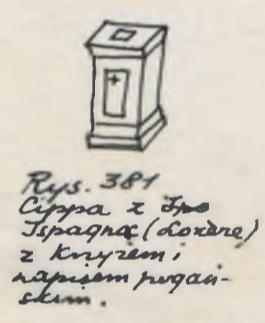 Rys. 381
Cippa z
Ispagnac (Lozère)
z krzyżem i
napisem pogań-
skim.